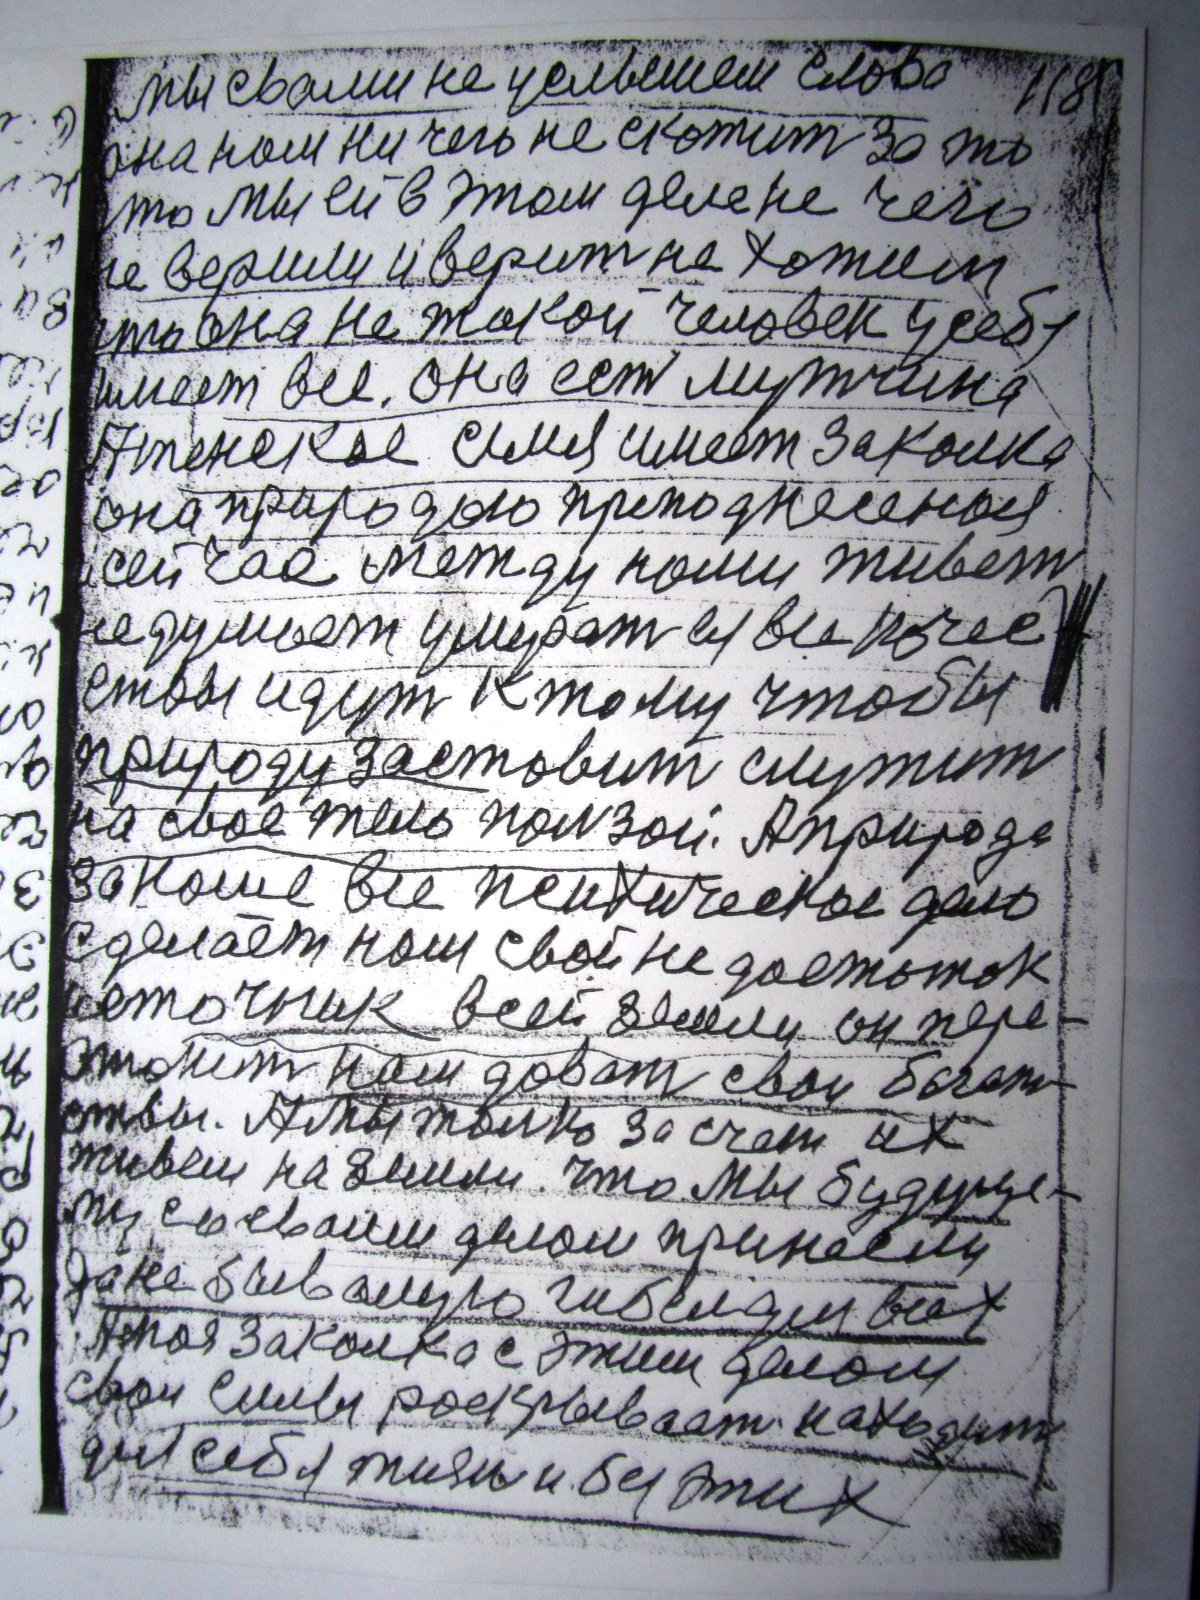 мы свами не услышем слова 118
она нам ни чего не скажит за то
что мы ей в этом деле не чего
не верили и верит не хотим
что она не такой человек у себя
имеет все. она ест мужчина
А женское имя имеет закалка
она природою преподнесеная
сейчас между нами живет
не думает умерат ея все каче
ствы идут к тому чтобы
природу заставит служит
на свое тело ползой. А природа
за наше все психическое дело
сделает нам свой не достаток
источник всей земли он пере-
станит нам доват свои богат-
ствы. А мы толко за счет их
живем на земли. что мы будуще-
му со своим делом принесли
да не бывалую гибел для всех
А моя закалка с этим делом
свои силы роскрываат находит
для себя жизн и бея этих